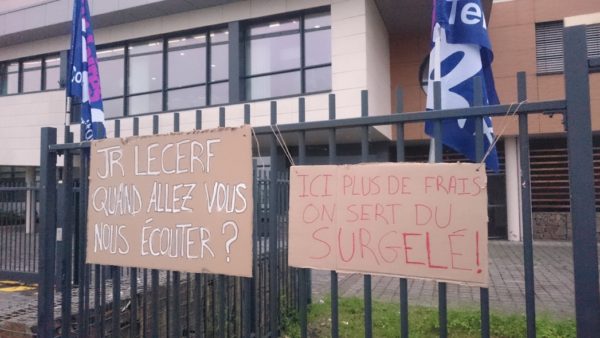 JR LECERF
QUAND ALLEZ VOUS
NOUS ÉCOUTER ?
ICI PLUS DE FRAIS
ON SERT DU
SURGELÉ !